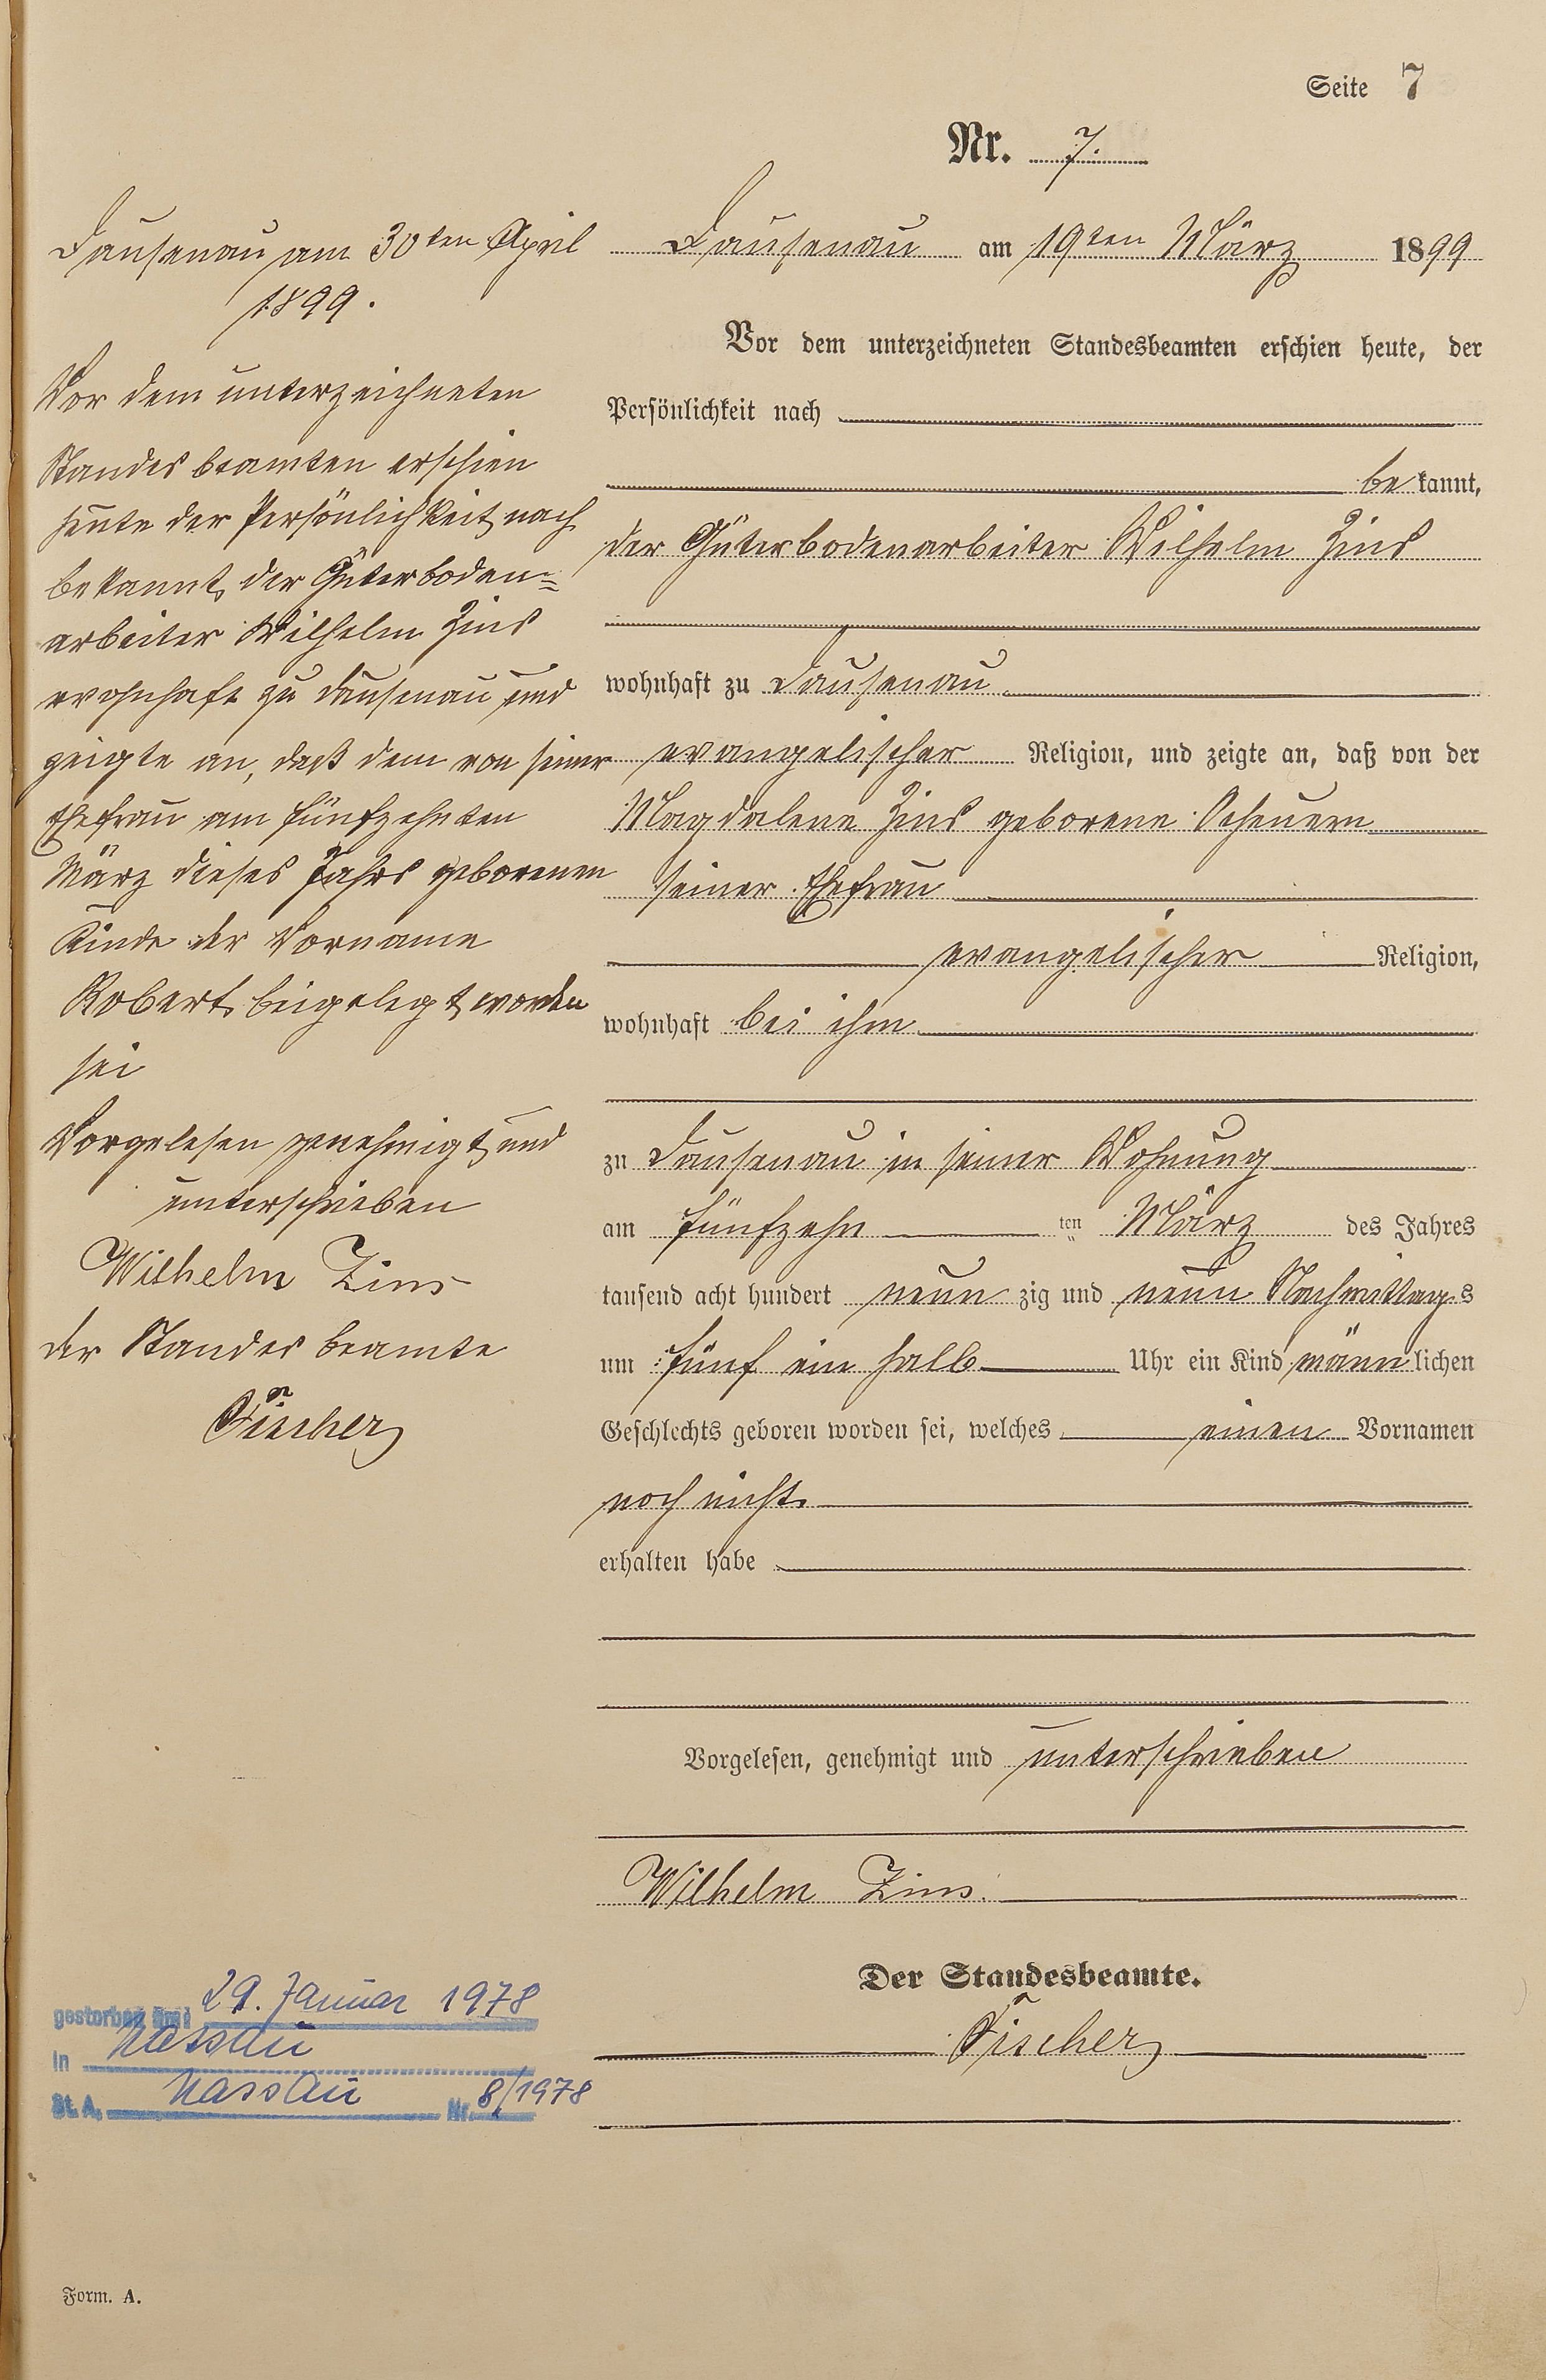 Seite 7
Nr. 7.
Dausenau am 19ten März 1899
Vor dem unterzeichneten Standesbeamten erschien heute, der
Persönlichkeit nach
be kannt,
der Güterbodenarbeiter Wilhelm Zins
wohnhaft zu Dausenau
evangelischer Religion, und zeigte an, daß von der
Magdalene Zins geborene Scheuern
seiner Ehefrau
evangelischer Religion,
wohnhaft bei ihm
zu Dausenau in seiner Wohnung
am fünfzehn ten März des Jahres
tausend acht hundert neun zig und neun Nachmittags
um fünf ein halb Uhr ein Kind männlichen
Geschlechts geboren worden sei, welches einen Vornamen
noch nicht
erhalten habe
Vorgelesen, genehmigt und unterschrieben
Wilhelm Zins.
Der Standesbeamte.
Fischer
Dausenau am 30ten April
1899.
Vor dem unterzeichneten
Standesbeamten erschien
heute der Persönlichkeit nach
bekannt, der Güterboden=
arbeiter Wilhelm Zins
wohnhaft zu Dausenau und
zeigte an, daß dem von seiner
Ehefrau am fünfzehnten
März dieses Jahrs geborenen
Kinde der Vorname
Robert beigelegt worden
sei
Vorgelesen genehmigt und
unterschrieben
Wilhelm Zins
der Standesbeamte
Fischer
gestorben am 29. Januar 1978
in Nassau
St. A. Nassau Nr. 8/1978
Form. A.